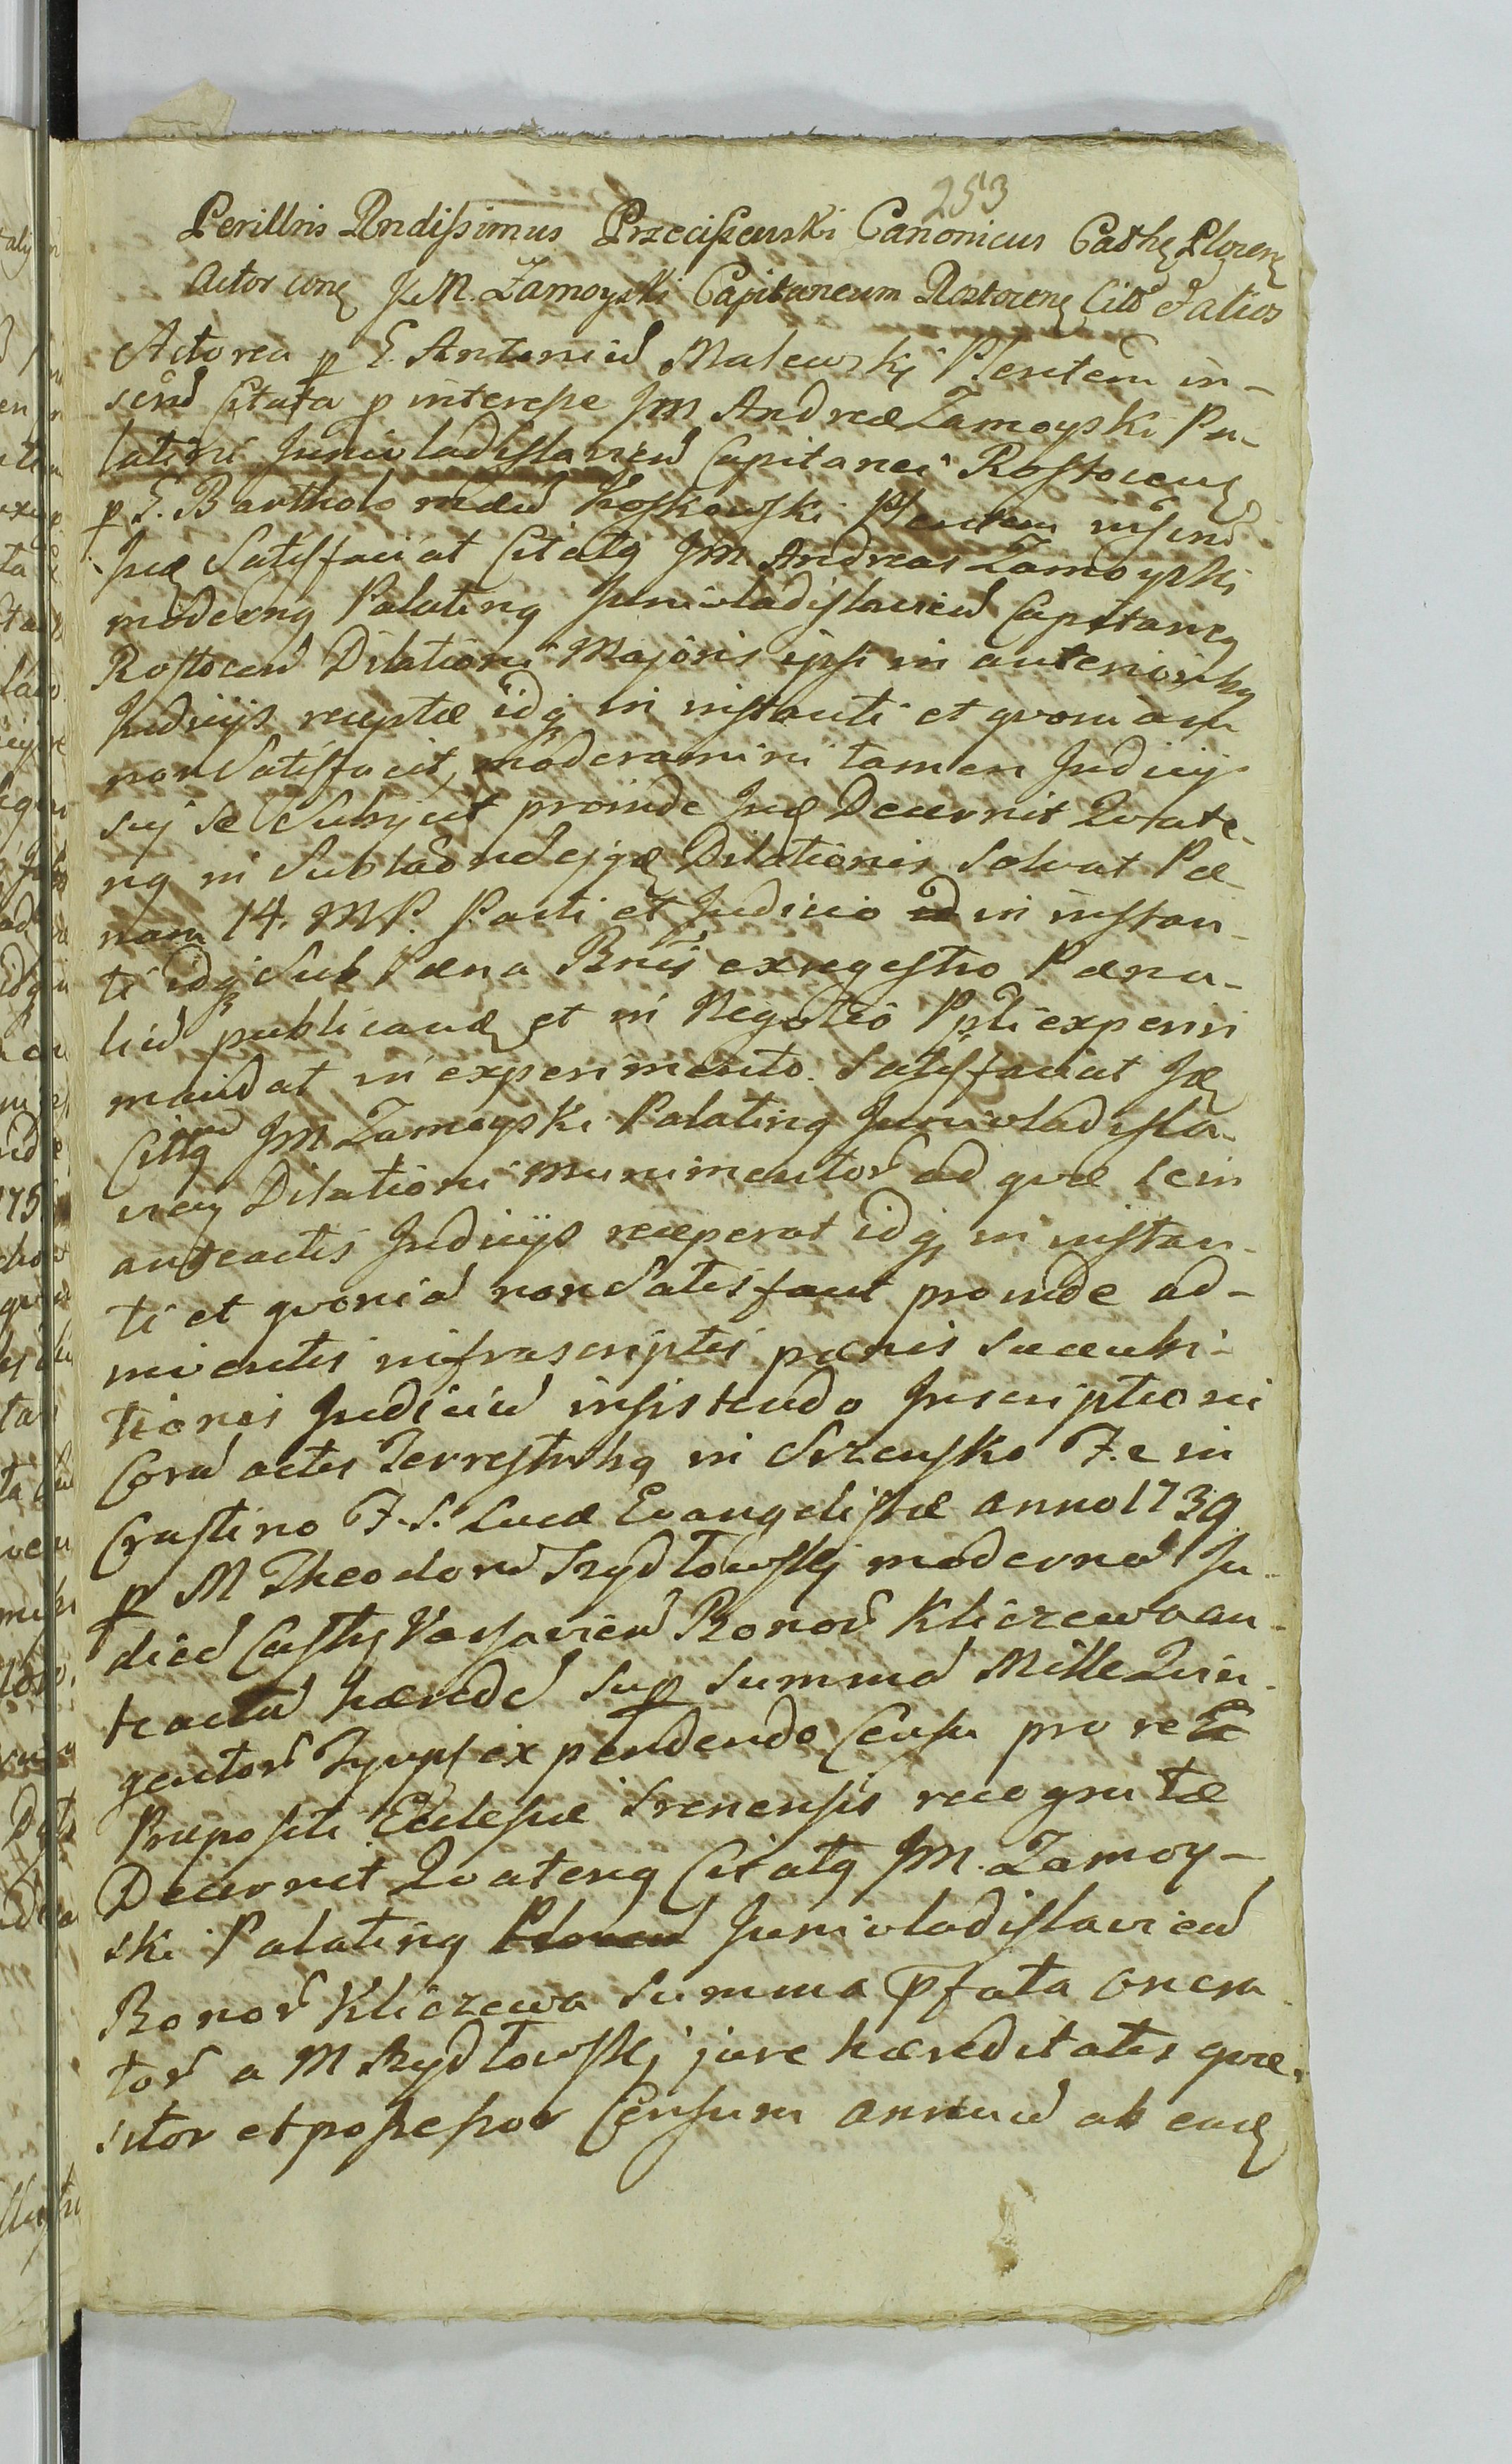 253
Perillris Rndissimus Przeciszewski Canonicus Cathę Plocenę
Actor conę J.M. Zamoyski Capitaneum Rostocenę Citõ et alios
Actorea p E. Antoniũ Malewskj Plentem in-
send Citata p interesse JM Andreæ Zamoyski Pa-
latini Junivladislavien Capitanei Rostocenę
p E. Bartholomæũ Koskowski Plentem insend
Juđ Satisfaciat Citatq JM Andreas Zamoyski
modernq Palatinq Junivladislavien Capitaneq
Rostocen Dilationi Majoris ipsi in anterioribq
Judicijs receptæ idq in instanti et qvoniam
non Satisfecit, moderamini tamen Judicij
sui se Subjicit proinde Juđ Decernit Qvate-
nq in Sublað ejsđ Dilationis Solvat Pæ-
nam 14. MP. Parti et Judicio in instan-
ti idq Sub Pæna Bnis ex regestro Pæna-
liũ publicandę et in Negotio Ppli experiri
mandat in experimento. Satisfaciat Jđ
Citq JM Zamoyski Palatinq Junivladisla-
vien Dilationi Munimentor ad qvæ se in
anteactis Judicijs receperat idq in instan-
ti et qvoniã non Satisfacit proinde ad-
invientis infrascriptis pænis succubi-
tionis Judiciũ insistendo Inscriptioni
Corã actis Terrestribq in Szrensko F. e in
Crastino F. S. Lucæ Evangelistæ anno 1739
p M Theodorũ Szydłowskj modernũ Ju-
dicẽ Casthę Varsavien Bonor Kliczewo an-
hæredẽ sup Summã Mille Qvin-
gentor Tynpf expendendo Censu pro re
Præpositi Ecclesiæ Srenensis recognitæ
Decernit Qvatenq Citatq JM. Zamoy-
ski Palatinq Junivladislavien
Bonor Kliczewa Summa pfata onera-
tor a M Szydłowskj jure hæreditatis qvæ-
sitor et possessor Censum annuũ ab eadę